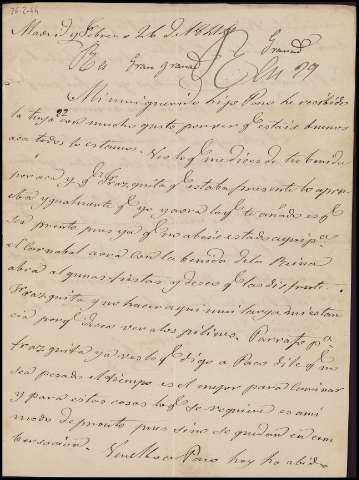 26-2-44
Madrid y Febrero 26 de 1844
Granad
Rea Gran Granad En 99
Mi muy querido hijo Paco he recibido
la tuya con mucho gusto por ver qe estais buenos
aca todos lo estamos. Veo lo qe me dices de tu benida
por aca y qe Frazquita qe estaba presente lo apro
eba ygualmente qe yo y aora lo qe te añado es qe
sea pronto pues ya qe no abeis estado aqui pa
el Carnabal aora con la benida de la Reina
abra algunas fiestas y deseo qe las disfrute
Frazquita y no hacer aqui mui larga mi estan
cia porqe deseo ver a los pitines. Parrafo pa
Frazquita ya ves lo qe digo a Paco dile qe no
sea pesado el tiempo es el mejor para caminar
y para estas cosas lo qe se requiere es a mi
modo de pronto pues sino se quedan en com
bersacion. Ven Paco hoy ha abido